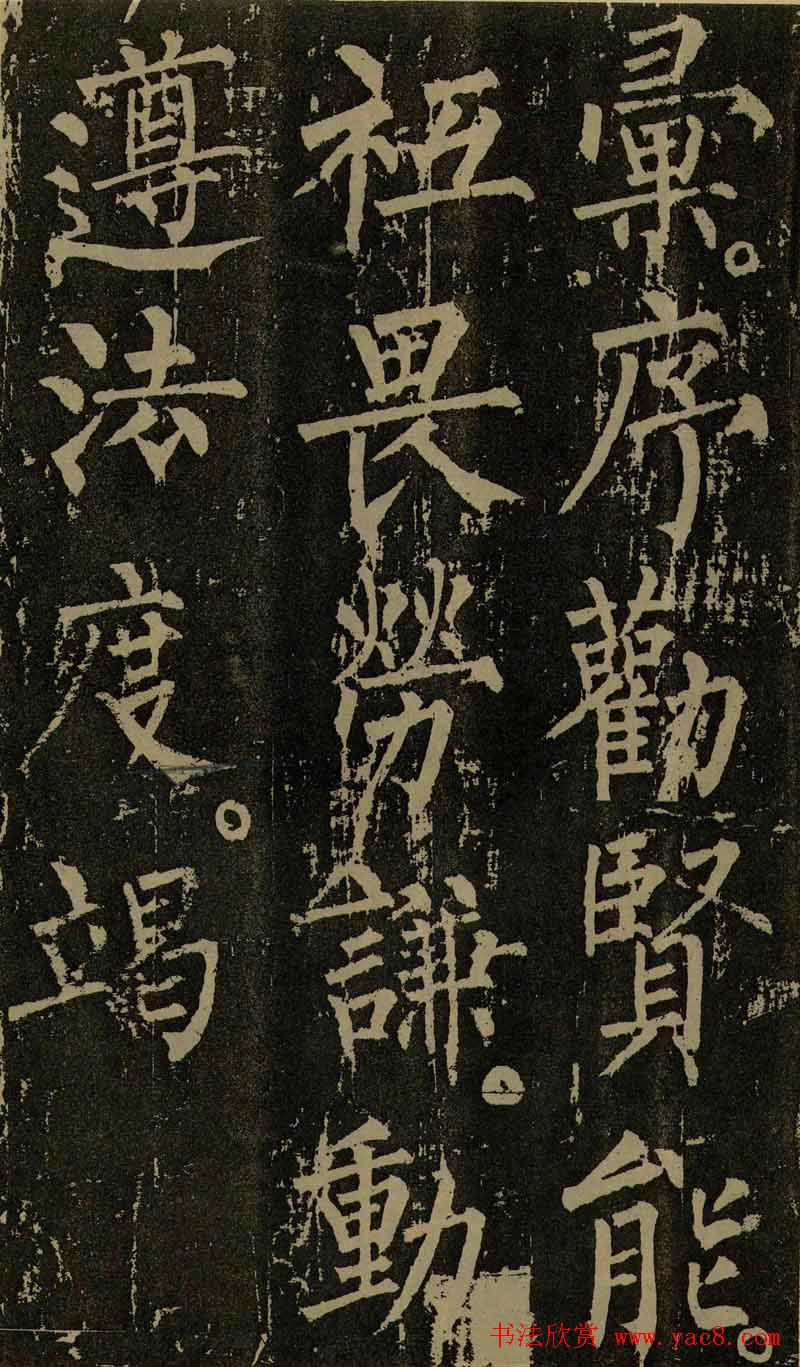 彙。序勸賢能。
祗畏勞謙。動
遵法度。竭
书法欣赏 www.yac8.com